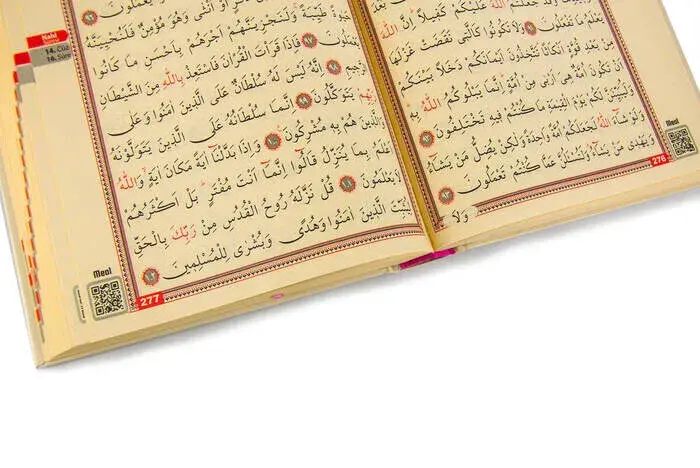 اللّٰهَ عَلَيْكُمْ كَفِيلًا اِنَّ اللّٰهَ
يَعْلَمُ مَا تَفْعَلُونَ ٩١ وَلَا تَكُونُوا كَالَّتِي نَقَضَتْ غَزْلَهَا
مِنْ بَعْدِ قُوَّةٍ اَنْكَاثًا تَتَّخِذُونَ اَيْمَانَكُمْ دَخَلًا بَيْنَكُمْ
اَنْ تَكُونَ اُمَّةٌ هِيَ اَرْبٰى مِنْ اُمَّةٍ اِنَّمَا يَبْلُوكُمُ اللّٰهُ بِهِ
وَلَيُبَيِّنَنَّ لَكُمْ يَوْمَ الْقِيٰمَةِ مَا كُنْتُمْ فِيهِ تَخْتَلِفُونَ ٩٢
وَلَوْ شَاءَ اللّٰهُ لَجَعَلَكُمْ اُمَّةً وَاحِدَةً وَلٰكِنْ يُضِلُّ مَنْ يَشَاءُ
وَيَهْدِي مَنْ يَشَاءُ وَلَتُسْـَٔلُنَّ عَمَّا كُنْتُمْ تَعْمَلُونَ ٩٣
وَلَا
276
Meal
Nahl
14. Cüz
16. Sûre
اَوْ اُنْثٰى وَهُوَ مُؤْمِنٌ فَلَنُحْيِيَنَّهُ
حَيٰوةً طَيِّبَةً وَلَنَجْزِيَنَّهُمْ اَجْرَهُمْ بِاَحْسَنِ مَا كَانُوا
يَعْمَلُونَ ٩٧ فَاِذَا قَرَأْتَ الْقُرْاٰنَ فَاسْتَعِذْ بِاللّٰهِ مِنَ الشَّيْطَانِ
الرَّجِيمِ ٩٨ اِنَّهُ لَيْسَ لَهُ سُلْطَانٌ عَلَى الَّذِينَ اٰمَنُوا وَعَلٰى
رَبِّهِمْ يَتَوَكَّلُونَ ٩٩ اِنَّمَا سُلْطَانُهُ عَلَى الَّذِينَ يَتَوَلَّوْنَهُ
وَالَّذِينَ هُمْ بِهِ مُشْرِكُونَ ١٠٠ وَاِذَا بَدَّلْنَا اٰيَةً مَكَانَ اٰيَةٍ وَاللّٰهُ
اَعْلَمُ بِمَا يُنَزِّلُ قَالُوا اِنَّمَا اَنْتَ مُفْتَرٍ بَلْ اَكْثَرُهُمْ
لَا يَعْلَمُونَ ١٠١ قُلْ نَزَّلَهُ رُوحُ الْقُدُسِ مِنْ رَبِّكَ بِالْحَقِّ
لِيُثَبِّتَ الَّذِينَ اٰمَنُوا وَهُدًى وَبُشْرٰى لِلْمُسْلِمِينَ ١٠٢
277
Meal